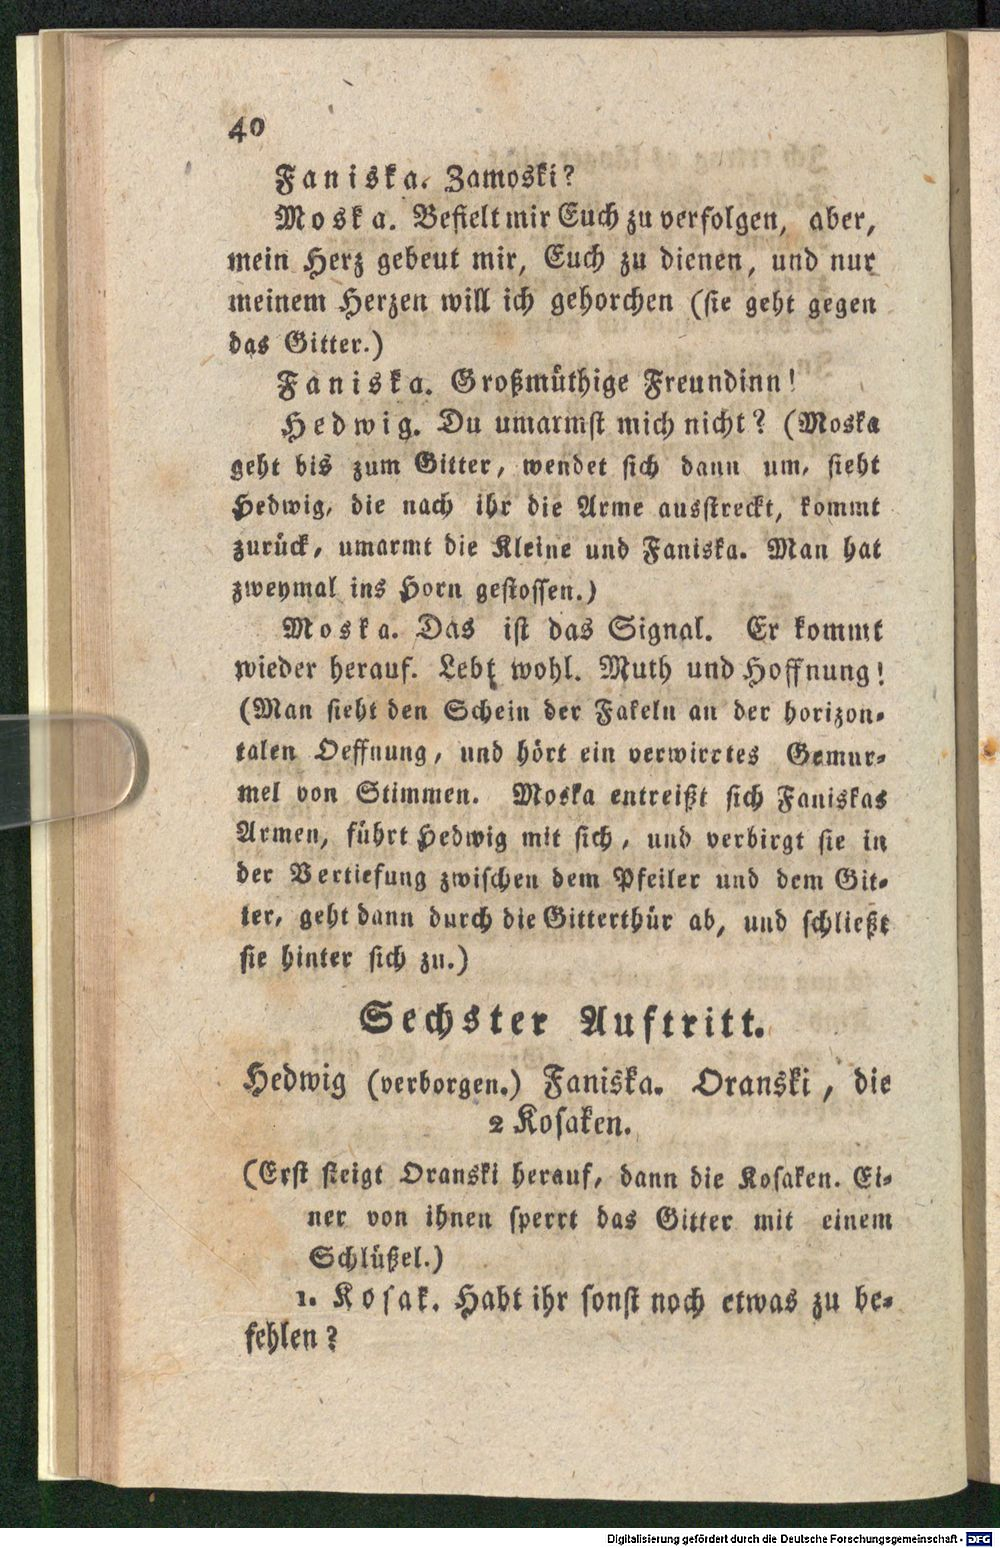 40
Faniska. Zamoski?
Moska. Befielt mir Euch zu verfolgen, aber,
mein Herz gebeut mir, Euch zu dienen, und nur
meinem Herzen will ich gehorchen (sie geht gegen
das Gitter.)
Faniska. Großmüthige Freundinn!
Hedwig. Du umarmst mich nicht? (Moska
geht bis zum Gitter, wendet sich dann um, sieht
Hedwig, die nach ihr die Arme ausstreckt, kommt
zurück, umarmt die Kleine und Faniska. Man hat
zweymal ins Horn gestossen.)
Moska. Das ist das Signal. Er kommt
wieder herauf. Lebt wohl. Muth und Hoffnung!
(Man sieht den Schein der Fakeln an der horizon-
talen Oeffnung, und hört ein verwirrtes Gemur-
mel von Stimmen. Moska entreißt sich Faniskas
Armen, führt Hedwig mit sich, und verbirgt sie in
der Vertiefung zwischen dem Pfeiler und dem Git-
ter, geht dann durch die Gitterthür ab, und schließt
sie hinter sich zu.)
Sechster Auftritt.
Hedwig (verborgen.) Faniska. Oranski, die
2 Kosaken.
(Erst steigt Oranski herauf, dann die Kosaken. Ei-
ner von ihnen sperrt das Gitter mit einem
Schlüßel.)
1. Kosak. Habt ihr sonst noch etwas zu be-
fehlen?
Digitalisierung gefördert durch die Deutsche Forschungsgemeinschaft - DFG